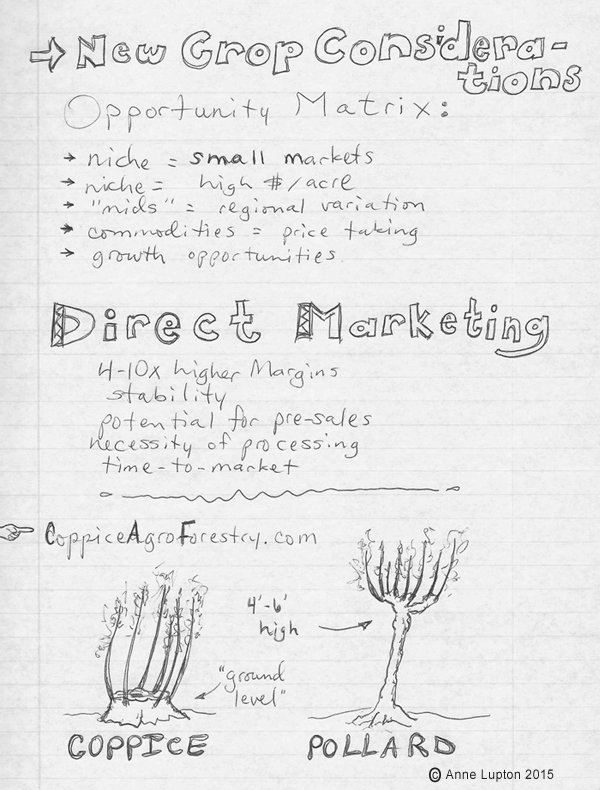 → New Crop Considera-
tions
Opportunity Matrix:
→ niche = small markets
→ niche = high $/acre
→ "mids" = regional variation
→ commodities = price taking
→ growth opportunities.
Direct Marketing
4-10x higher Margins
stability
potential for pre-sales
necessity of processing
time-to-market
CoppiceAgroForestry.com
4'-6'
high
"ground
level"
COPPICE
POLLARD
© Anne Lupton 2015